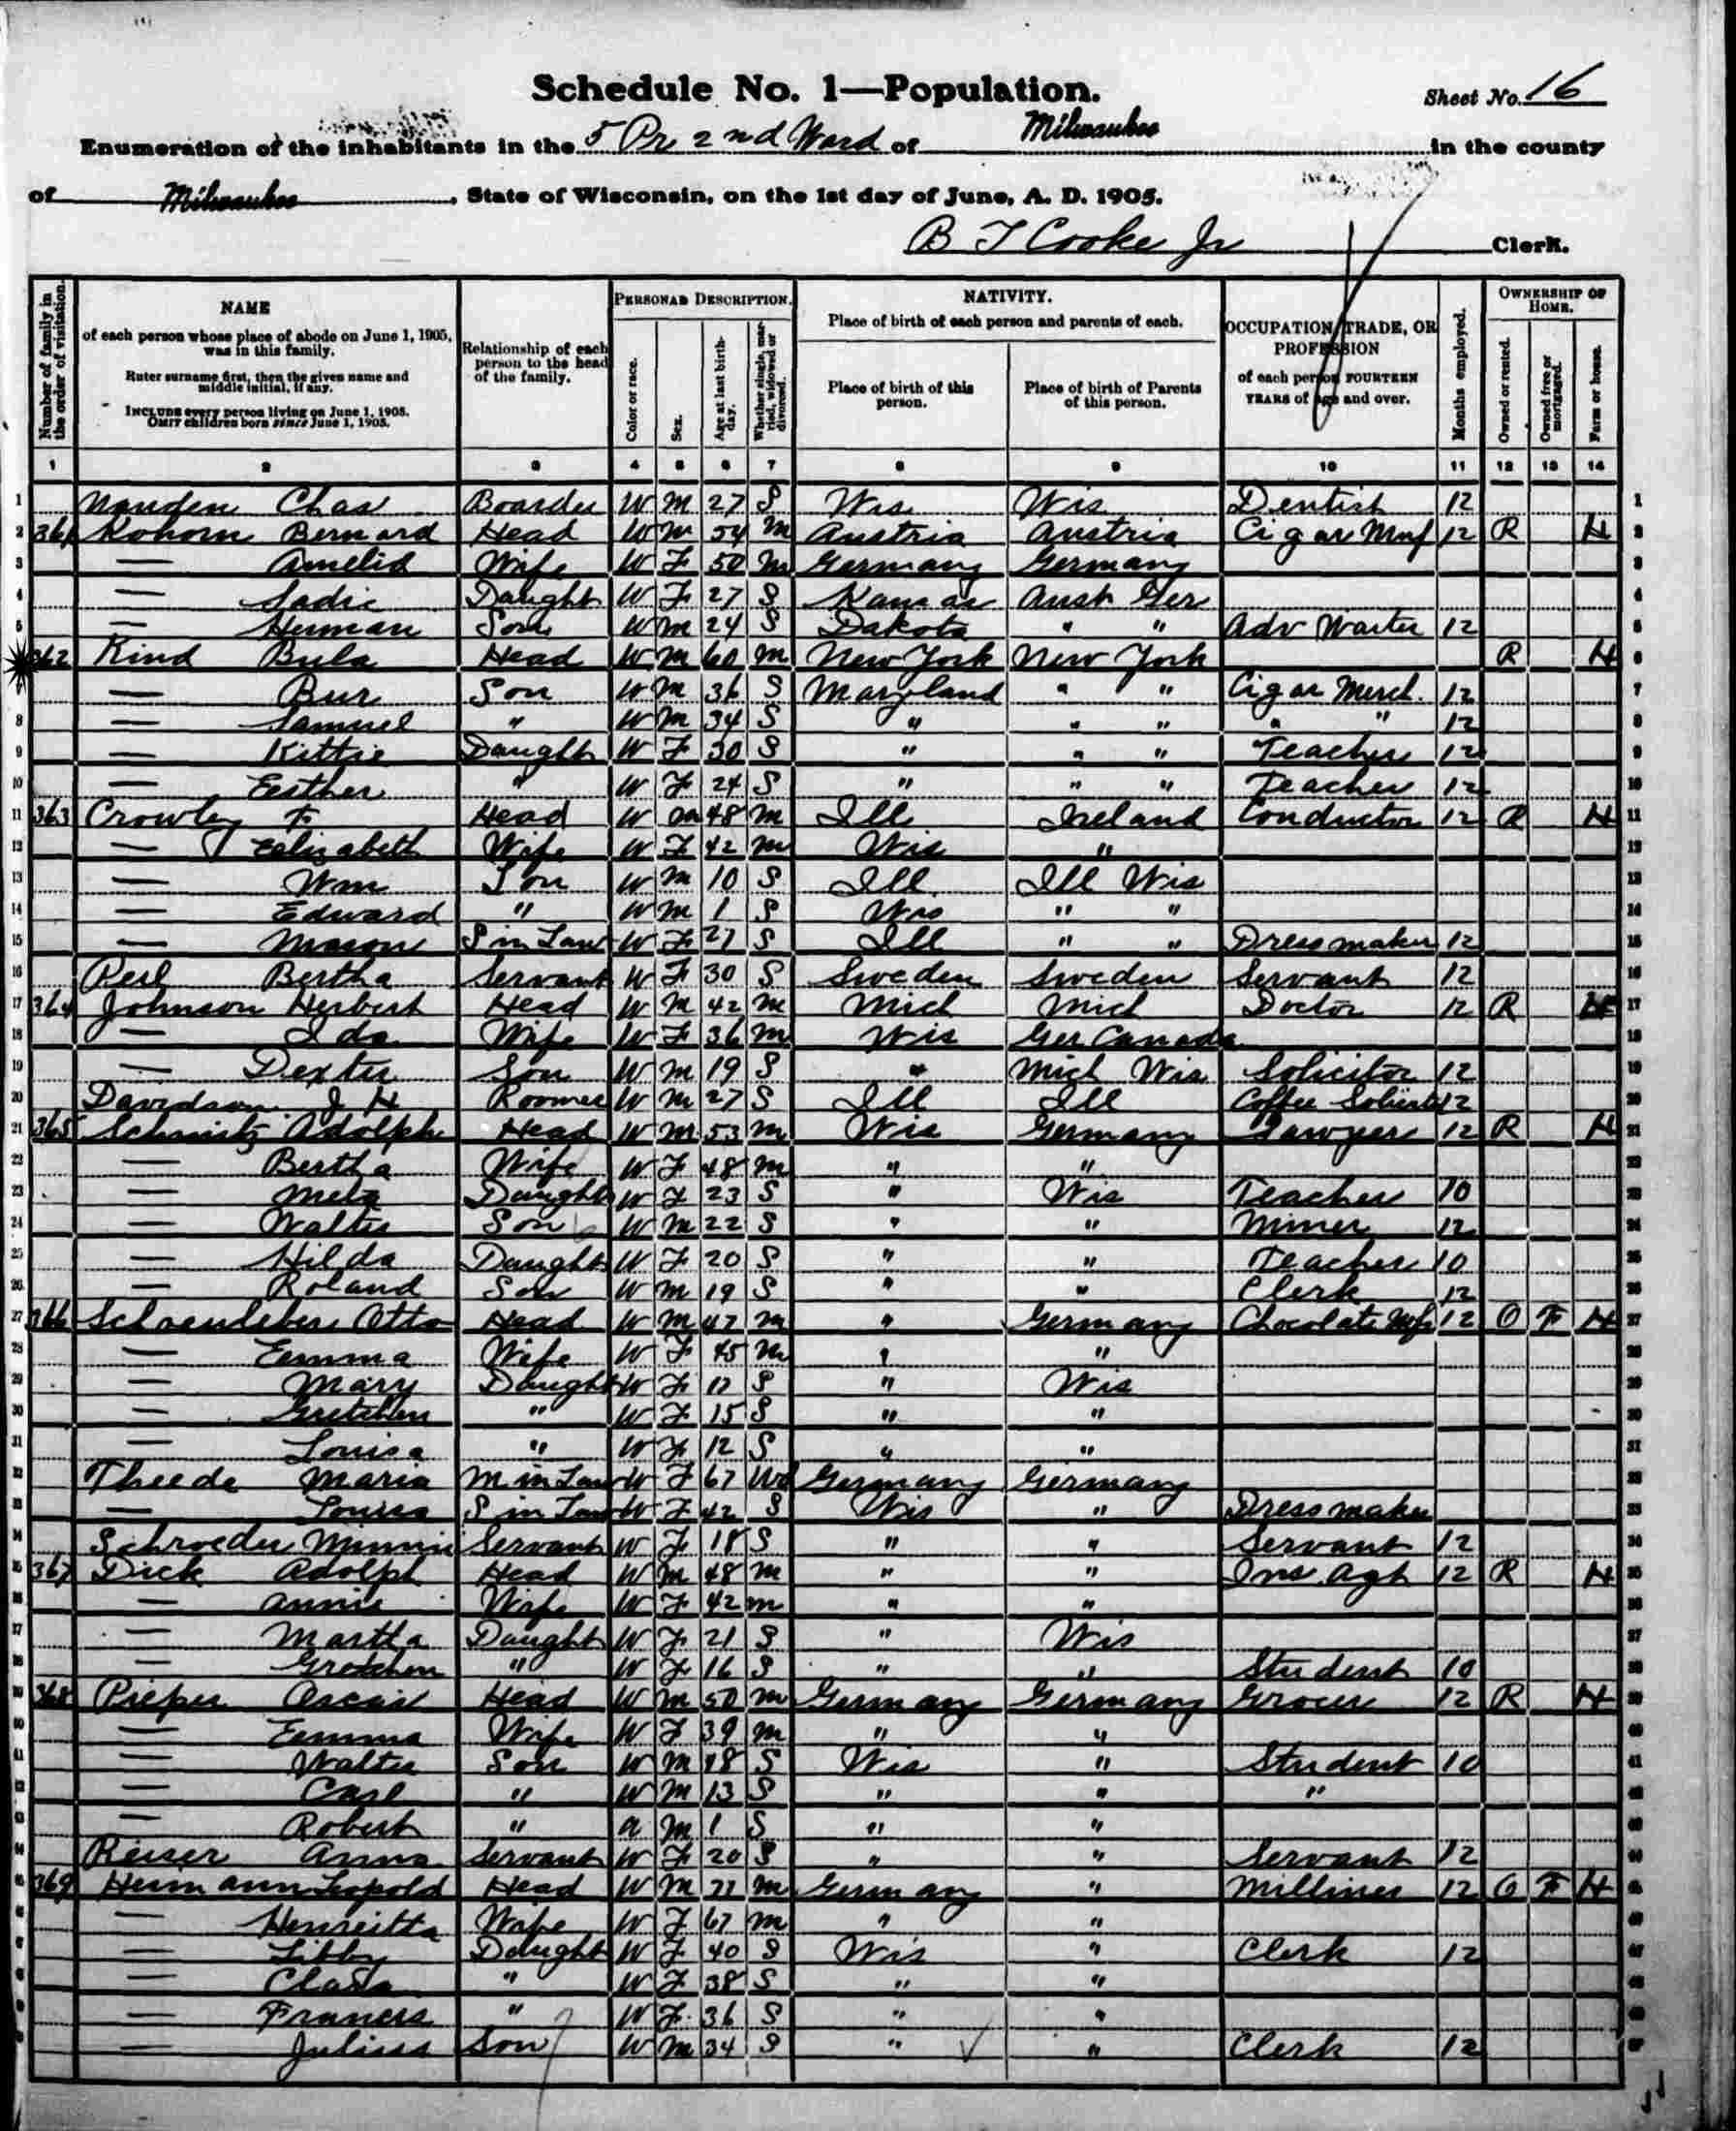 Schedule No. 1—Population.
Sheet No. 16
Enumeration of the inhabitants in the 5 Pr 2nd Ward of Milwaukee in the county
of Milwaukee, State of Wisconsin, on the 1st day of June, A. D. 1905.
B F Cooke Jr Clerk.
Number of family in the order of visitation.
NAME
of each person whose place of abode on June 1, 1905, was in this family.
Enter surname first, then the given name and middle initial, if any.
INCLUDE every person living on June 1, 1905.
OMIT children born since June 1, 1905.
Relationship of each person to the head of the family.
PERSONAL DESCRIPTION.
Color or race.
Sex.
Age at last birthday.
Whether single, married, widowed or divorced.
NATIVITY.
Place of birth of each person and parents of each.
Place of birth of this person.
Place of birth of Parents of this person.
OCCUPATION, TRADE, OR PROFESSION
of each person FOURTEEN YEARS of age and over.
Months employed.
OWNERSHIP OF HOME.
Owned or rented.
Owned free or mortgaged.
Farm or house.
1 2 3 4 5 6 7 8 9 10 11 12 13 14
1 Chas Boarder W M 27 S Wis Wis Dentist 12 1
2 361 Kohorn Bernard Head W M 54 M Austria Austria Cigar Mnf 12 R H 2
3 — Amelia Wife W F 50 M Germany Germany 3
4 — Sadie Daught W F 27 S Kansas Aust Ger 4
5 — Herman Son W M 24 S Dakota " " Adv 12 5
6 362 Kind Bula Head W M 60 M New York New York R H 6
7 — Bur Son W M 36 S Maryland " " Cigar Merch. 12 7
8 — Samuel " W M 34 S " " " " " 12 8
9 — Kittie Daught W F 30 S " " " Teacher 12 9
10 — Eesther " W F 24 S " " " Teacher 12 10
11 363 Crowley F Head W M 48 M Ill Ireland Conductor 12 R H 11
12 — Eelizabeth Wife W F 42 M Wis " 12
13 — Wm Son W M 10 S Ill Ill Wis 13
14 — Edward " W M 1 S Wis " " 14
15 — Mason S in Law W F 27 S Ill " " Dressmaker 12 15
16 Pesl Bertha Servant W F 30 S Sweden Sweden Servant 12 16
17 364 Johnson Herbert Head W M 42 M Mich Mich Doctor 12 R H 17
18 — Ida Wife W F 36 M Wis Ger Canada 18
19 — Dexter Son W M 19 S " Mich Wis Solicitor 12 19
20 Davidson J H Roomer W M 27 S Ill Ill Coffee 12 20
21 365 Schmitz Adolph Head W M 53 M Wis Germany Lawyer 12 R H 21
22 — Bertha Wife W F 48 M " " 22
23 — Meta Daught W F 23 S " Wis Teacher 10 23
24 — Walter Son W M 22 S " " Miner 12 24
25 — Hilda Daught W F 20 S " " Teacher 10 25
26 — Roland Son W M 19 S " " Clerk 12 26
27 366 Schoenleber Otto Head W M 47 M " Germany Chocolate Mfr 12 O F H 27
28 — Eemma Wife W F 45 M " " 28
29 — Mary Daught W F 17 S " Wis 29
30 — Gretchen " W F 15 S " " 30
31 — Louisa " W F 12 S " " 31
32 Theede Maria M in Law W F 67 Wd Germany Germany 32
33 — Louisa S in Law W F 42 S Wis " Dressmaker 33
34 Schroeder Minnie Servant W F 18 S " " Servant 12 34
35 367 Dick Adolph Head W M 48 M " " Ins. Agt 12 R H 35
36 — Annie Wife W F 42 M " " 36
37 — Martha Daught W F 21 S " Wis 37
38 — Gretchen " W F 16 S " " Student 10 38
39 368 Pieper Oscar Head W M 50 M Germany Germany Grocer 12 R H 39
40 — Eemma Wife W F 39 M " " 40
41 — Walter Son W M 18 S Wis " Student 10 41
42 — Carl " W M 13 S " " " 42
43 — Robert " W M 1 S " " 43
44 Reiser Anna Servant W F 20 S " " Servant 12 44
45 369 Heimann Leopold Head W M 71 M Germany " Milliner 12 O F H 45
— Henreitta Wife W F 67 M " "
— Libby Daught W F 40 S Wis " Clerk 12 47
— Clara " W F 38 S " "
— Frances " W F 36 S " "
— Julius Son W M 34 S " " Clerk 12